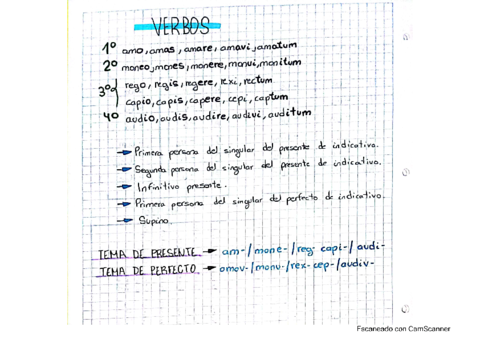 VERBOS
1º amo, amas, amare, amavi, amatum
2º moneo, mones, monere, monui, monitum
3º rego, regis, regere, rexi, rectum
capio, capis, capere, cepi, captum
4º audio, audis, audire, audivi, auditum
→ Primera persona del singular del presente de indicativo.
→ Segunda persona del singular del presente de indicativo.
→ Infinitivo presente.
→ Primera persona del singular del perfecto de indicativo.
→ Supino.
TEMA DE PRESENTE → am-/mone-/reg- capi-/audi-
TEMA DE PERFECTO → amav-/monu-/rex- cep-/audiv-
Escaneado con CamScanner